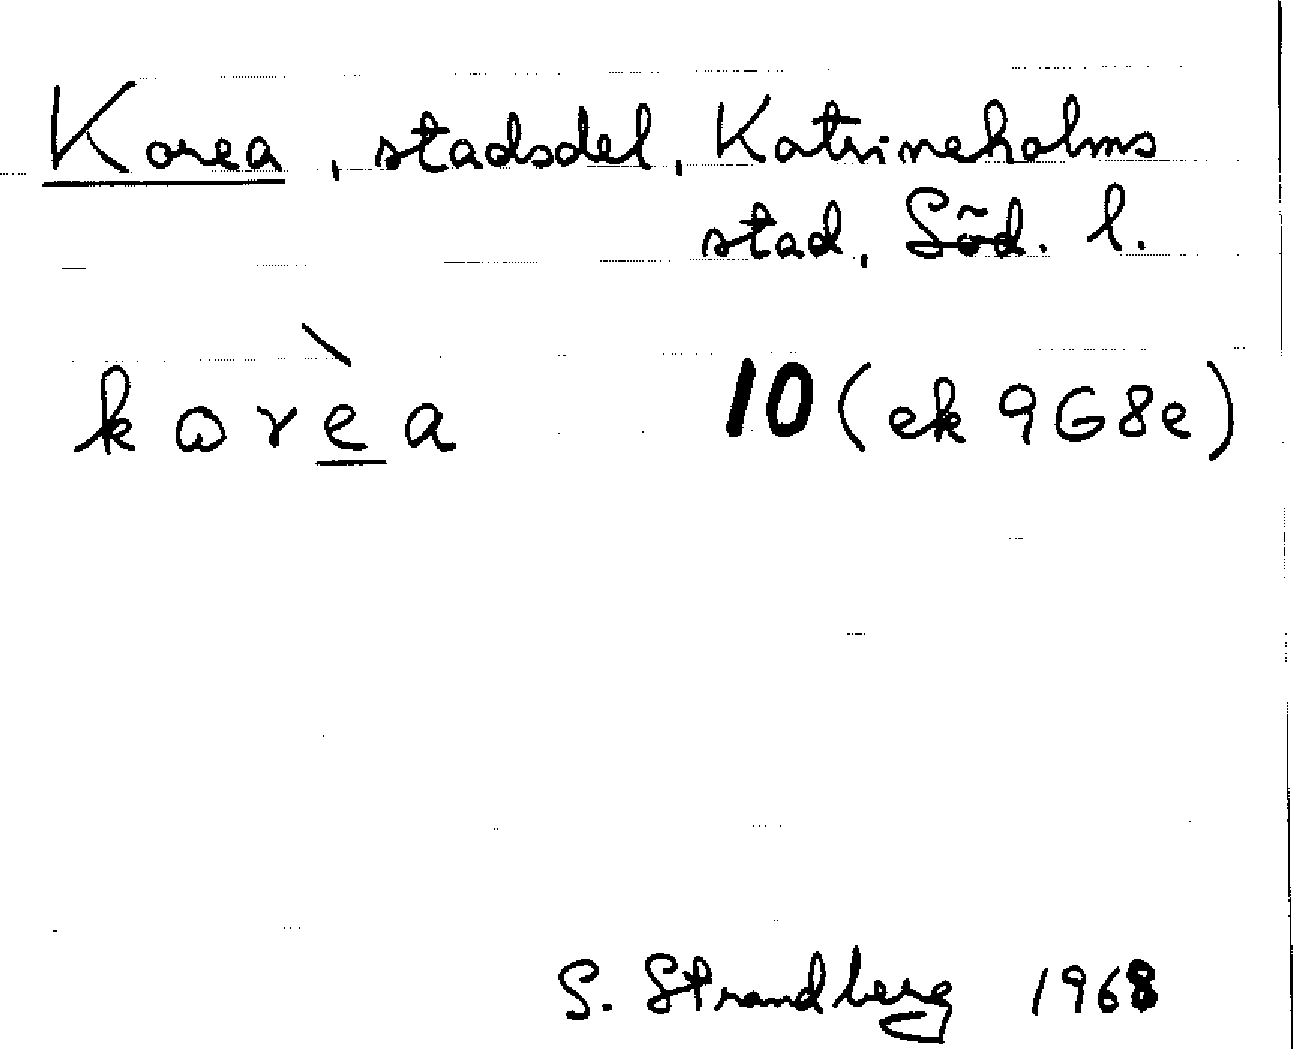 Korea, stadsdel, Katrineholms
stad, Söd. l.
kωrèa 10 (ek 9G8e)
S. Strandberg 1968